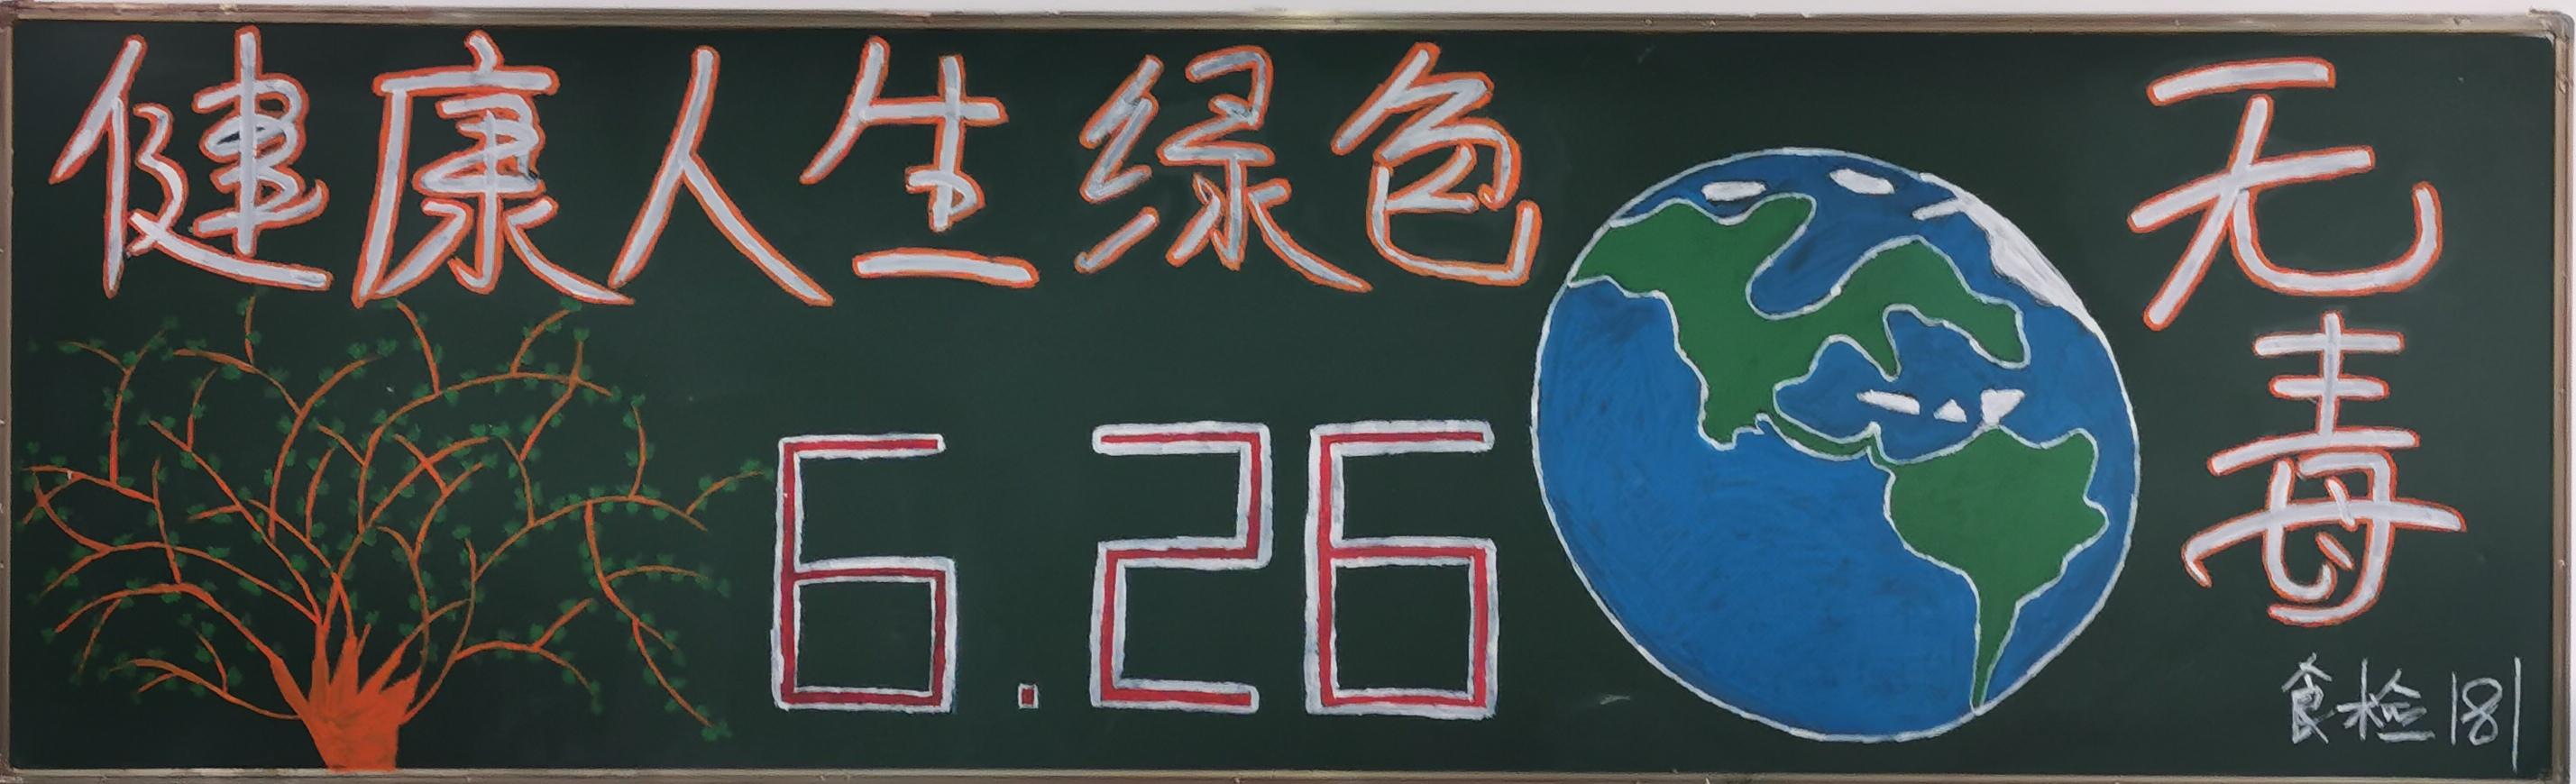 健康人生绿色
无毒
6.26
食检181